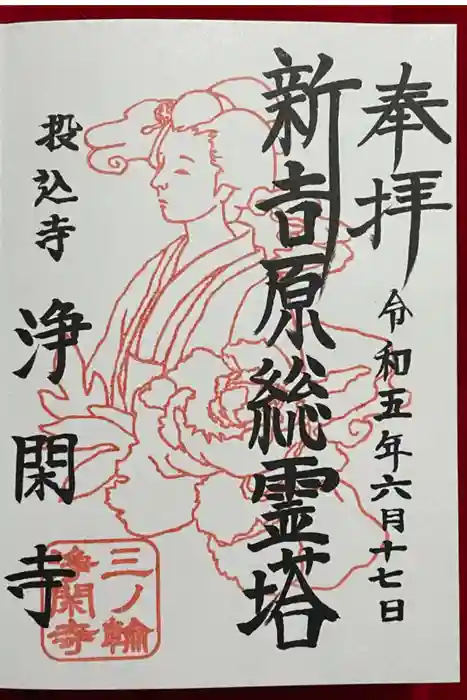 奉拝
令和五年六月十七日
新吉原総霊塔
投込寺
浄閑寺
三ノ輪
浄閑寺